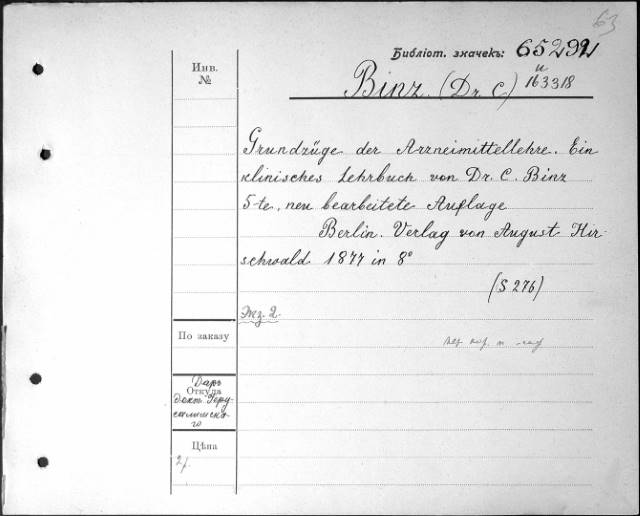 63
Библіот. значекъ: 65292
и
163318
Инв.
№
Binz. (Dr. C)
Grundzüge der Arzneimittellehre. Ein
klinisches Lehrbuch von Dr. C. Binz
5-te, neu bearbeitete Auflage
Berlin. Verlag von August Hir-
schwald 1877 in 8°
(S 276)
Экз. 2
По заказу
Откуда
Даръ
докт. Іеру-
салимска-
го
Цѣна
2 р.